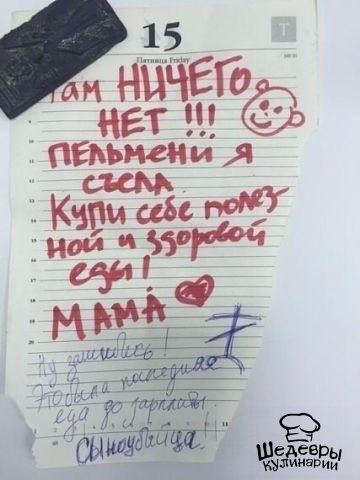 15
Пятница Friday
Т
Там НИЧЕГО
НЕТ !!!
ПЕЛЬМЕНИ Я
СЪЕЛА
Купи себе полез-
ной и здоровой
еды!
МАМА
Ну зашибись!
Это была последняя
еда до зарплаты.
Сыноубийца.
Шедевры
кулинарии